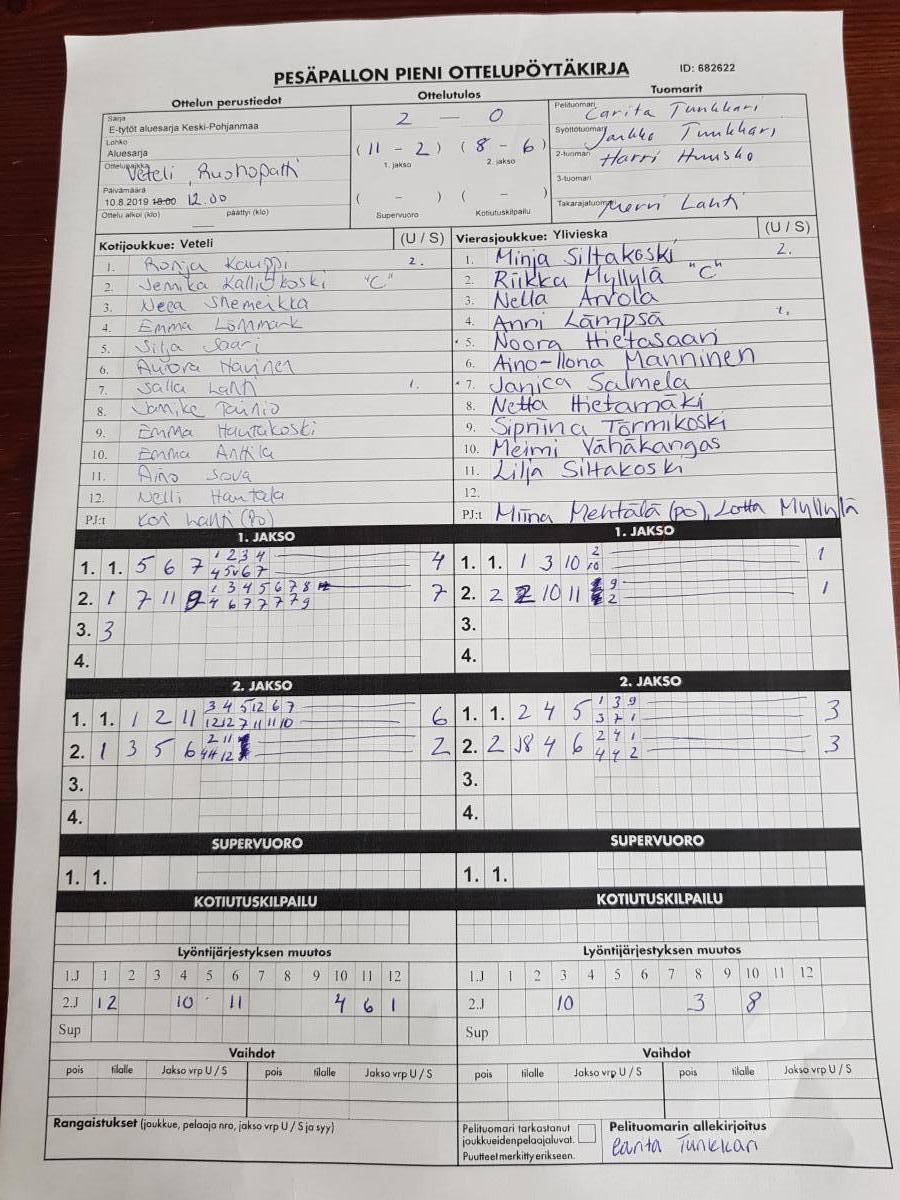 PESÄPALLON PIENI OTTELUPÖYTÄKIRJA
ID: 682622
Ottelun perustiedot
Ottelutulos
Tuomarit
Sarja
E-tytöt aluesarja Keski-Pohjanmaa
Lohko
Aluesarja
Ottelupaikka
Veteli
Päivämäärä
10.8.2019 18:00 12.00
Ottelu alkoi (klo) päättyi (klo)
2 — 0
(11 - 2) (8 - 6)
1. jakso 2. jakso
( - ) ( - )
Supervuoro Kotiutuskilpailu
Pelituomari Carita Tunkkari
Syöttötuomari Jarkko Tunkkari
2-tuomari Harri Huusko
3-tuomari
Takarajatuomari Mervi Lahti
Kotijoukkue: Veteli (U / S)
1. Ronja Kauppi 2.
2. Jemika Kalliokoski "C"
3. Neea Shemeikka
4. Emma Lönnmark
5. Silja Saari
6. Aurora Navinen
7. Salla Lahti 1.
8. Janike Tainio
9. Emma Hautakoski
10. Emma Anttila
11. Aino Sova
12. Nelli Hautala
PJ:t Kari Lahti (po)
Vierasjoukkue: Ylivieska (U / S)
1. Minja Siltakoski 2.
2. Riikka Myllylä "C"
3. Nella Arvola
4. Anni Lämpsä 1.
5. Noora Hietasaari
6. Aino-Ilona Manninen
7. Janica Salmela
8. Netta Hietamäki
9. Törmikoski
10. Meimi Vähäkangas
11. Lilja Siltakoski
12.
PJ:t Miina Mehtälä (po), Lotta Myllylä
1. JAKSO
1. 1. 5 6 7 1 2 3 4 4
4 5 6 7
2. 1 7 11 9 1 3 4 5 6 7 8 7
4 6 7 7 7 7 9
3. 3
4.
1. JAKSO
1. 1. 1 3 10 2 1
10
2. 2 2 10 11 9 1
2
3.
4.
2. JAKSO
1. 1. 1 2 11 3 4 5 12 6 7 6
12 12 7 11 11 10
2. 1 3 5 6 2 11 2
4 12
3.
4.
2. JAKSO
1. 1. 2 4 5 1 3 9 3
3 7 1
2. 2 8 4 6 2 4 1 3
4 4 2
3.
4.
SUPERVUORO
1. 1.
SUPERVUORO
1. 1.
KOTIUTUSKILPAILU
KOTIUTUSKILPAILU
Lyöntijärjestyksen muutos
1.J 1 2 3 4 5 6 7 8 9 10 11 12
2.J 12 10 11 4 6 1
Sup
Lyöntijärjestyksen muutos
1.J 1 2 3 4 5 6 7 8 9 10 11 12
2.J 10 3 8
Sup
Vaihdot
pois tilalle Jakso vrp U / S pois tilalle Jakso vrp U / S
Vaihdot
pois tilalle Jakso vrp U / S pois tilalle Jakso vrp U / S
Rangaistukset (joukkue, pelaaja nro, jakso vrp U / S ja syy)
Pelituomari tarkastanut
joukkueidenpelaajaluvat.
Puutteet merkitty erikseen.
Pelituomarin allekirjoitus
Carita Tunkkari